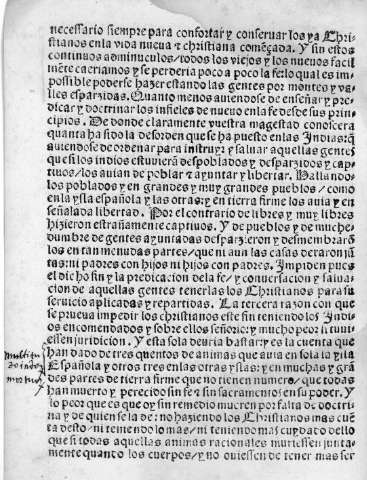 necessario siempre para confortar y conseruar los ya Chri-
stianos enla vida nueua & christiana comẽçada. Y sin estos
continuos adminuculos/todos los viejos y los nueuos facil
mẽte caeriamos y se perderia poco a poco la fe: lo qual es im-
possible poderse hazer estando las gentes por montes y va-
lles esparzidas. Quanto menos auiendose de enseñar y pre-
dicar y doctrinar los infieles de nueuo enla fe desde sus prin-
cipios. De donde claramente vuestra magestad conoscera
quanta ha sido la desorden que se ha puesto enlas Indias: q̃
auiendose de ordenar para instruyr y saluar aquellas gentes
que si los indios estuuierã despoblados y desparzidos y cap-
tiuos/los auian de poblar & ayuntar y libertar. Hallando
los poblados y en grandes y muy grandes pueblos/como
enla ysla española y las otras: y en tierra firme los auia y en
señalada libertad. Por el contrario de libres y muy libres
hizieron estrañamente captiuos. Y de pueblos y de muche-
dumbre de gentes ayuntadas desparzieron y desmembrarõ
los en tan menudas partes/que ni aun las casas deraron jũ
tas: ni padres con hijos ni hijos con padres. Impiden pues
el dicho fin y la predicacion dela fe/y conuersacion y salua-
cion de aquellas gentes tenerlas los Christianos para su
seruicio aplicadas y repartidas. La tercera razon con que
se prueua impedir los christianos este fin teniendo los Indi-
os encomendados y sobre ellos señorio: y mucho peor si tuui
essen juridicion. Y esta sola deuria bastar: y es la cuenta que
han dado de tres quentos de animas que auia en sola la ysla
Española y otros tres enlas otras yslas: y en muchas y grã
des partes de tierra firme que no tienen numero/que todas
han muerto y perecido sin fe & sin sacramentos en su poder. Y
lo peor que es que oy sin remedio mueren por falta de doctri-
na y de quien se la de: no haziendo los Christianos mas cuẽ
ta desto/ni teniendo lo mas/ni teniendo mas cuydado dello
que si todas aquellas animas racionales muriessen junta-
mente quanto los cuerpos/y no ouiessen de tener mas ser